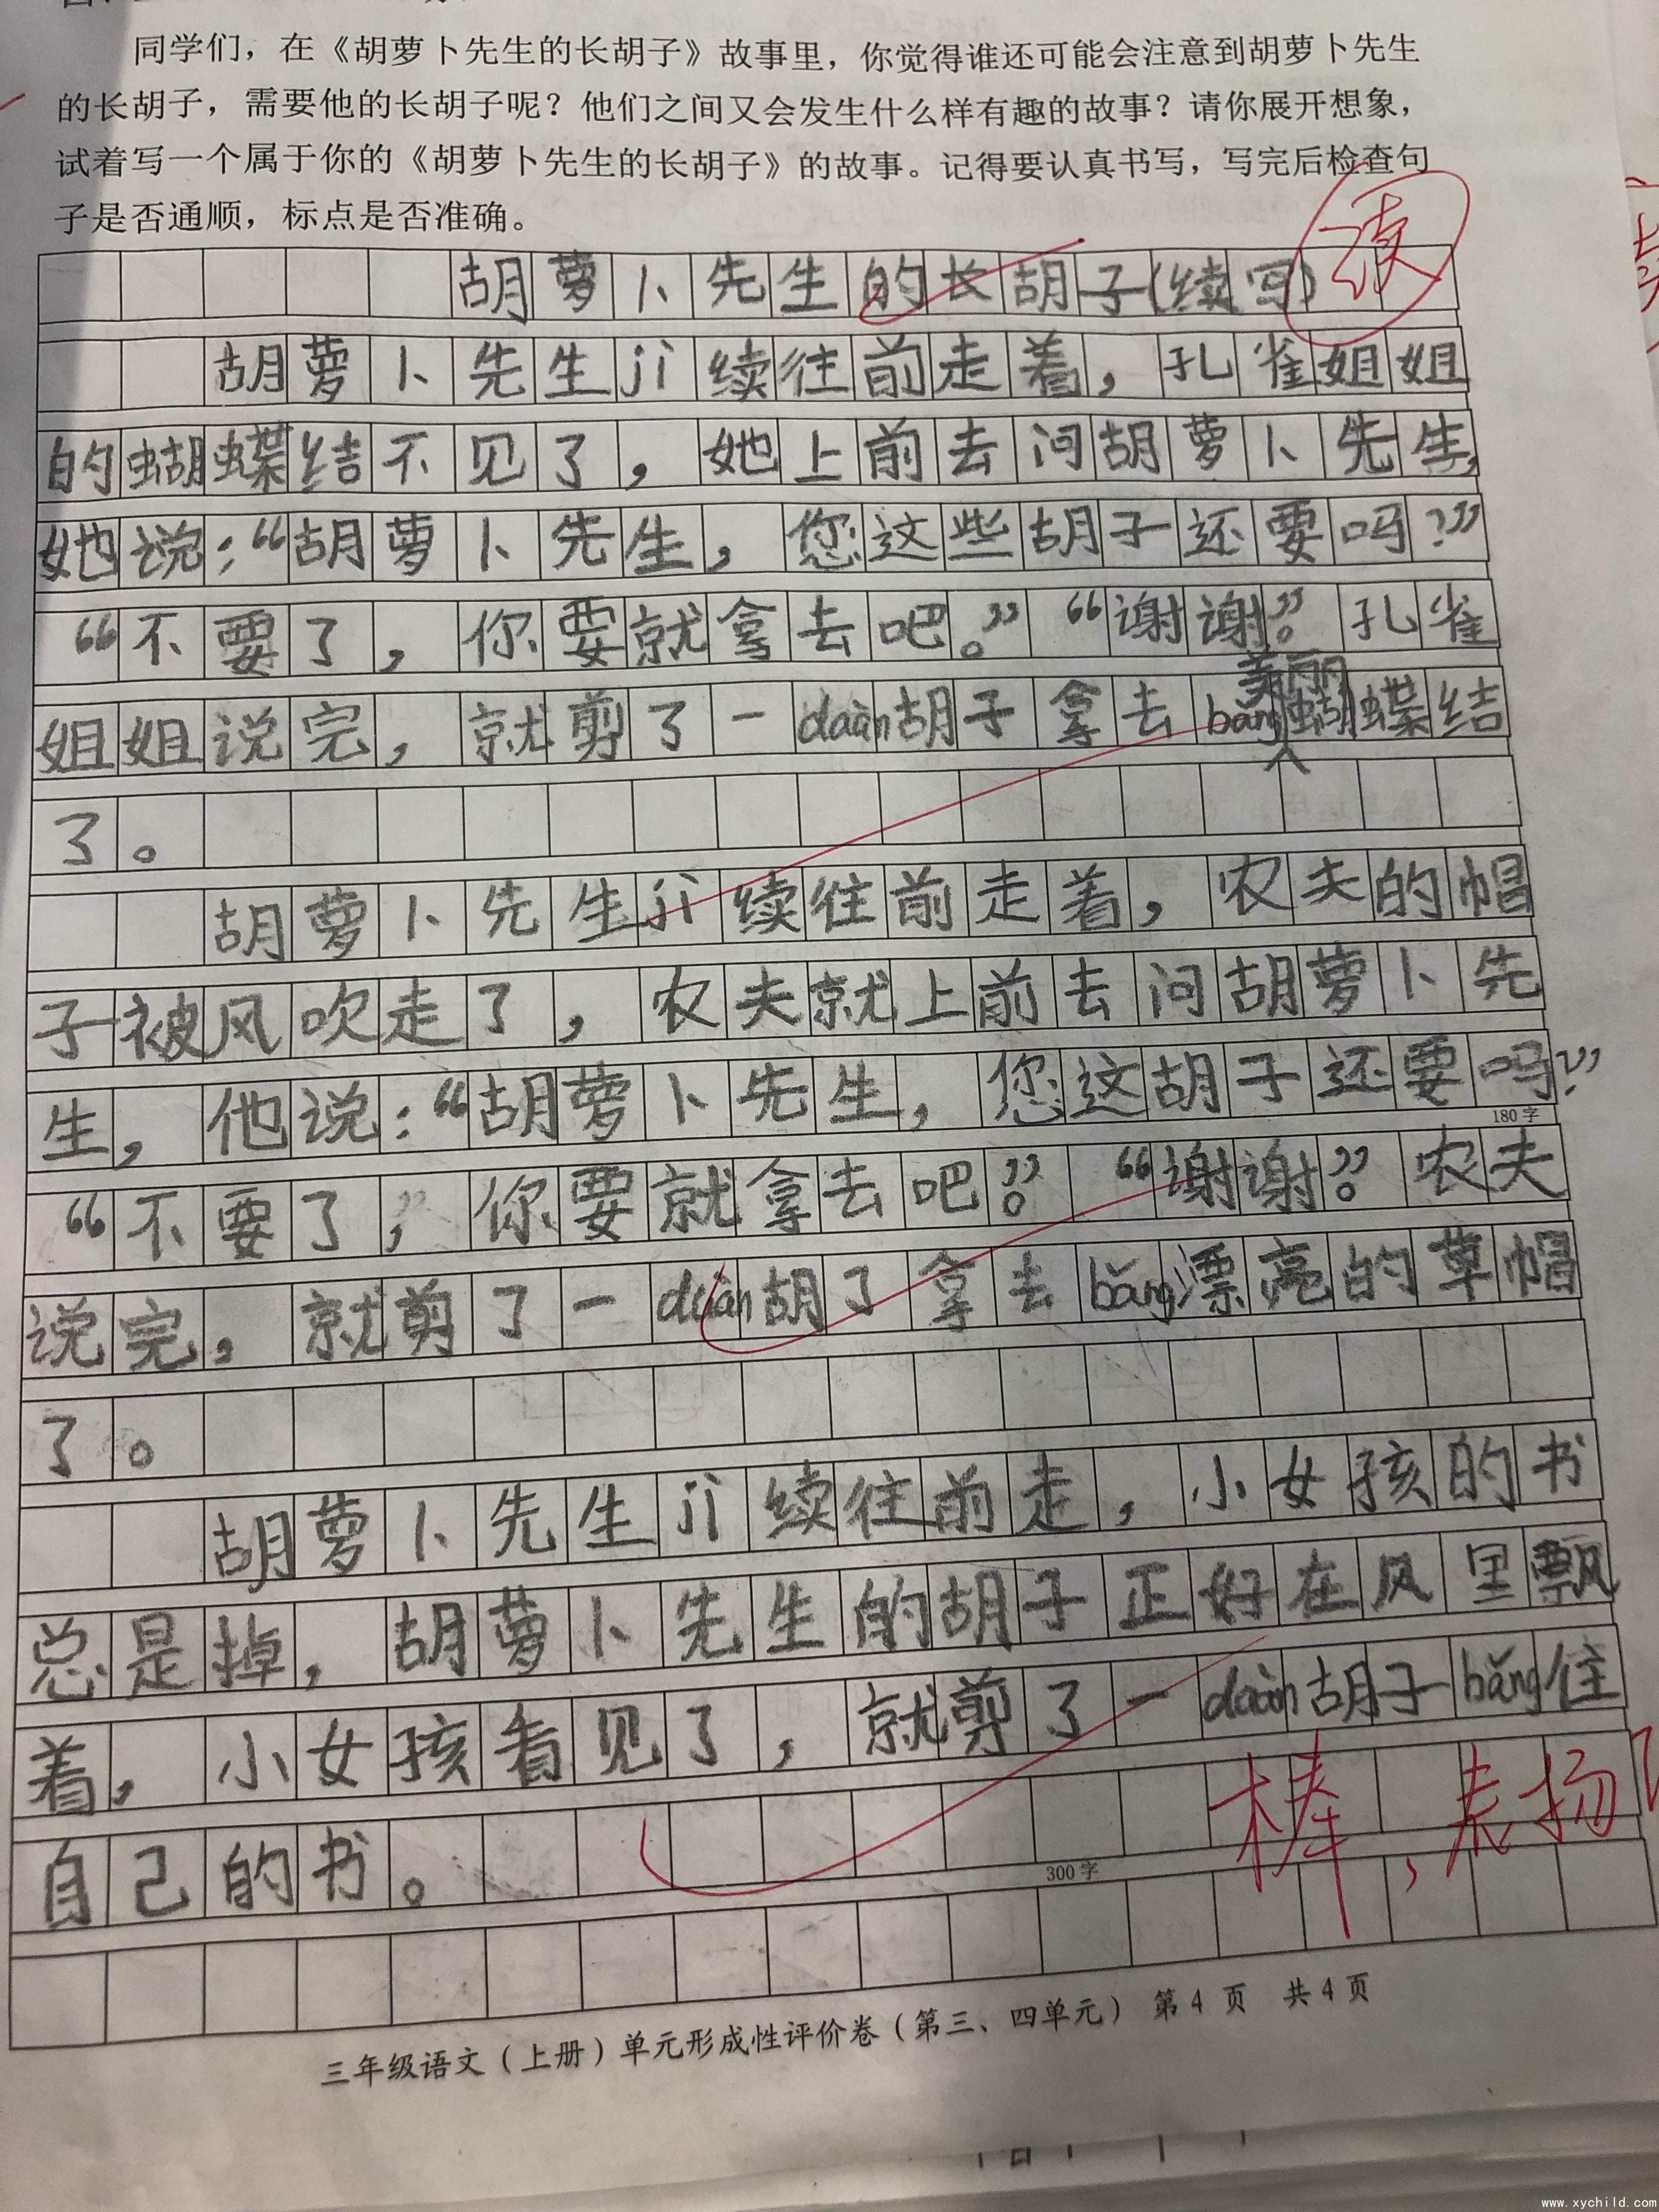 同学们，在《胡萝卜先生的长胡子》故事里，你觉得谁还可能会注意到胡萝卜先生
的长胡子，需要他的长胡子呢？他们之间又会发生什么样有趣的故事？请你展开想象，
试着写一个属于你的《胡萝卜先生的长胡子》的故事。记得要认真书写，写完后检查句
子是否通顺，标点是否准确。
读
胡萝卜先生的长胡子(续写)
胡萝卜先生jì续往前走着，孔雀姐姐
的蝴蝶结不见了，她上前去问胡萝卜先生，
她说：“胡萝卜先生，您这些胡子还要吗？”
“不要了，你要就拿去吧。”“谢谢”。孔雀
姐姐说完，就剪了一duàn胡子拿去bǎng美丽蝴蝶结
了。
胡萝卜先生jì续往前走着，农夫的帽
子被风吹走了，农夫就上前去问胡萝卜先
生，他说：“胡萝卜先生，您这胡子还要吗？”
180字
“不要了，你要就拿去吧。”“谢谢”。农夫
说完，就剪了一duàn胡了拿去bǎng漂亮的草帽
了。
胡萝卜先生jì续往前走，小女孩的书
总是掉，胡萝卜先生的胡子正好在风里飘
着，小女孩看见了，就剪了一duàn胡子bǎng住
自己的书。
300字
棒，表扬
三年级语文（上册）单元形成性评价卷（第三、四单元） 第4页 共4页
www.xychild.com